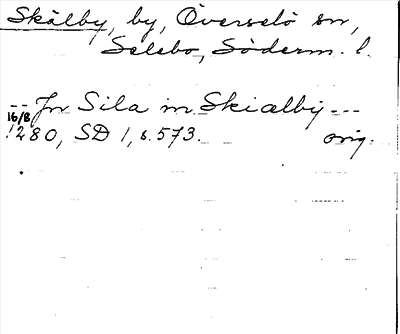 Skälby, by, Överselö sn,
Selebo, Söderm. l.
-- Jn Sila in Skiælby ---
16/8 1280, SD 1, s. 573. orig.